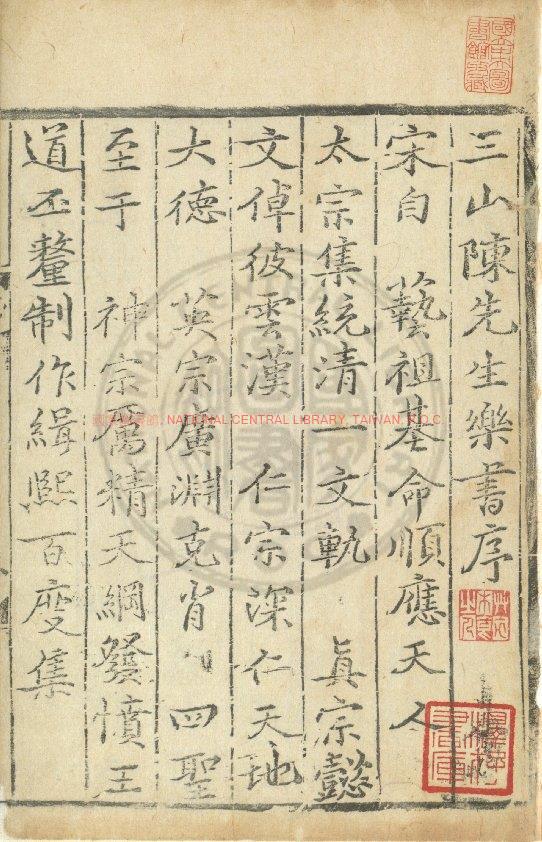 三山陳先生樂書序
宋自 藝祖基命順應天人
太宗集統清一文軌 眞宗懿
文倬彼雲漢 仁宗深仁天地
大德 英宗廣淵克肖 四聖
至于 神宗厲精天綱發憤王
道丕釐制作緝熙百度集
國家圖書館, NATIONAL CENTRAL LIBRARY, TAIWAN, R.O.C